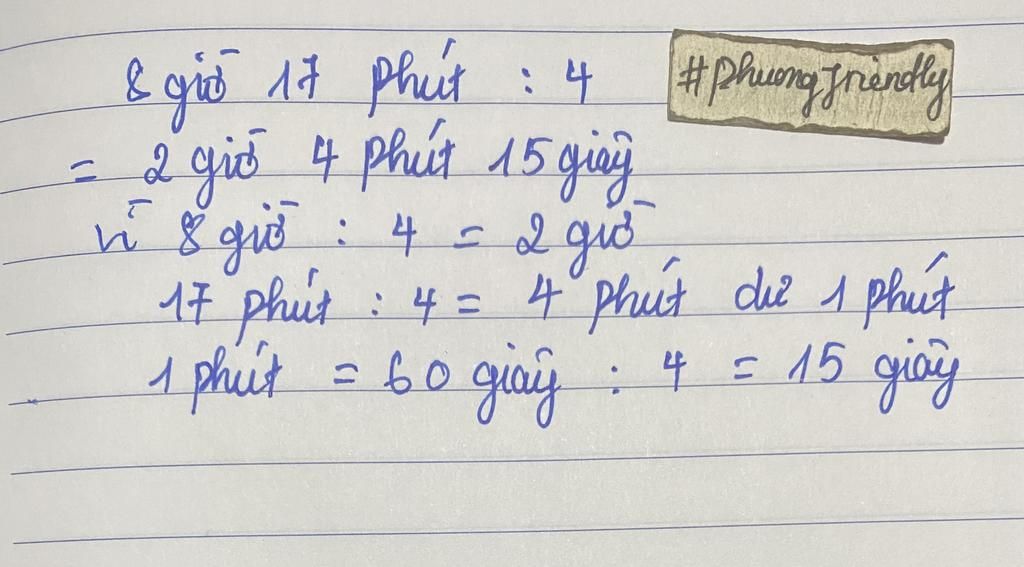 8 giờ 17 phút : 4
#phuongfriendly
= 2 giờ 4 phút 15 giây
vì 8 giờ : 4 = 2 giờ
17 phút : 4 = 4 phút dư 1 phút
1 phút = 60 giây : 4 = 15 giây